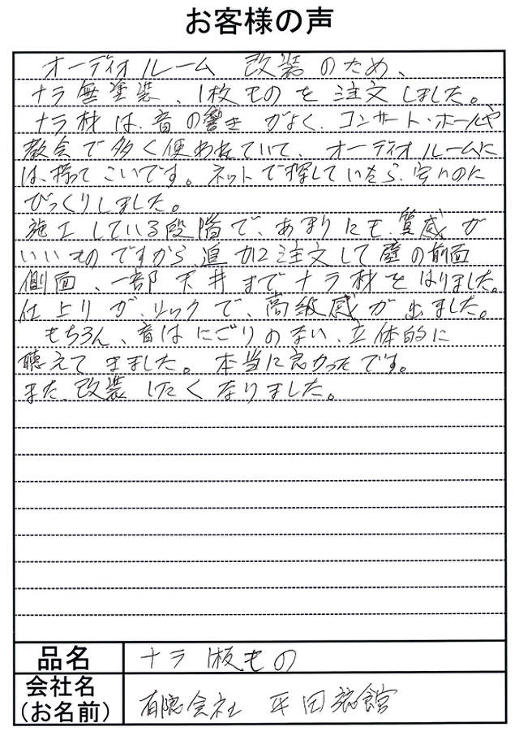 お客様の声
オーディオルーム 改装のため、
ナラ無塗装、1枚ものを注文しました。
ナラ材は、音の響きがよく、コンサート・ホールや
教会で多く使われていて、オーディオルームに
は、持ってこいです。ネットで探していたら、安いのに
びっくりしました。
施工している段階で、あまりにも、質感が
いいものですから、追加注文して壁の前面
側面、一部天井までナラ材をはりました。
仕上りが、シックで、高級感が出ました。
もちろん、音はにごりのない、立体的に
聴えてきました。本当に良かったです。
また、改装したくなりました。
品名 ナラ 1枚もの
会社名 (お名前) 有限会社 平田旅館